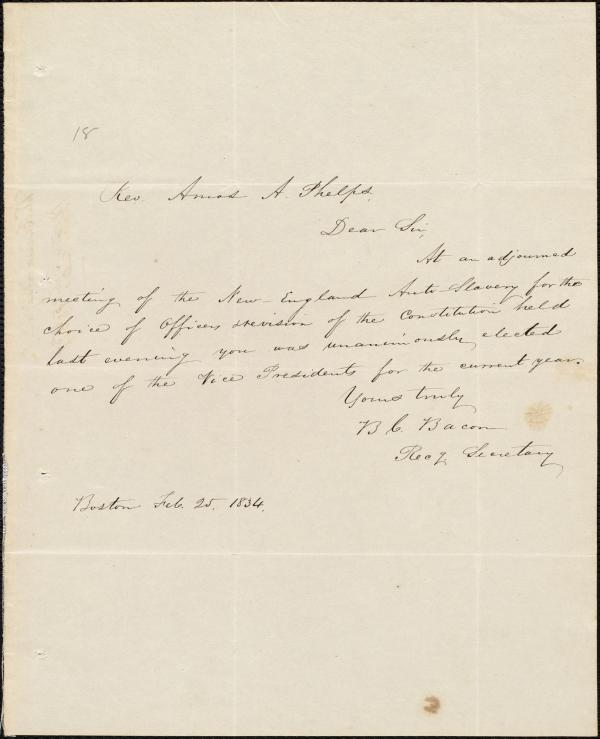 18
Rev. Amos A. Phelps,
Dear Sir,
At an adjourned
meeting of the New-England Anti-Slavery for the
choice of Officers & revision of the Constitution held
last evening you was unanimously elected
one of the Vice Presidents for the current year.
Yours truly
B. C. Bacon
Recg Secretary
Boston Feb. 25, 1834.